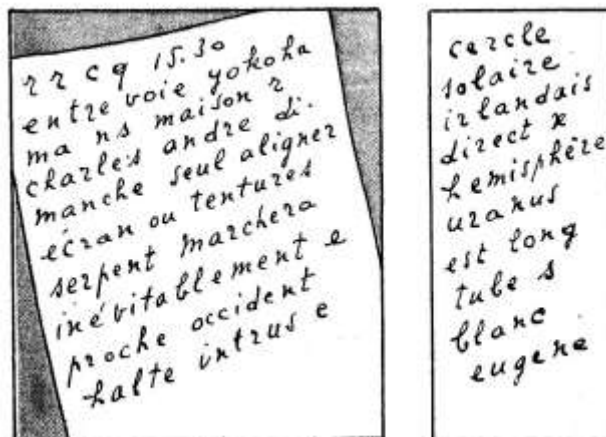 r r c q 15.30
entre voie yokoha
ma ns maison r
charles andre di.
manche seul aligner
écran ou tentures
serpent marchera
inévitablement e
proche occident
halte intrus e
cercle
solaire
irlandais
direct x
hemisphère
uranus
est long
tube s
blanc
eugene